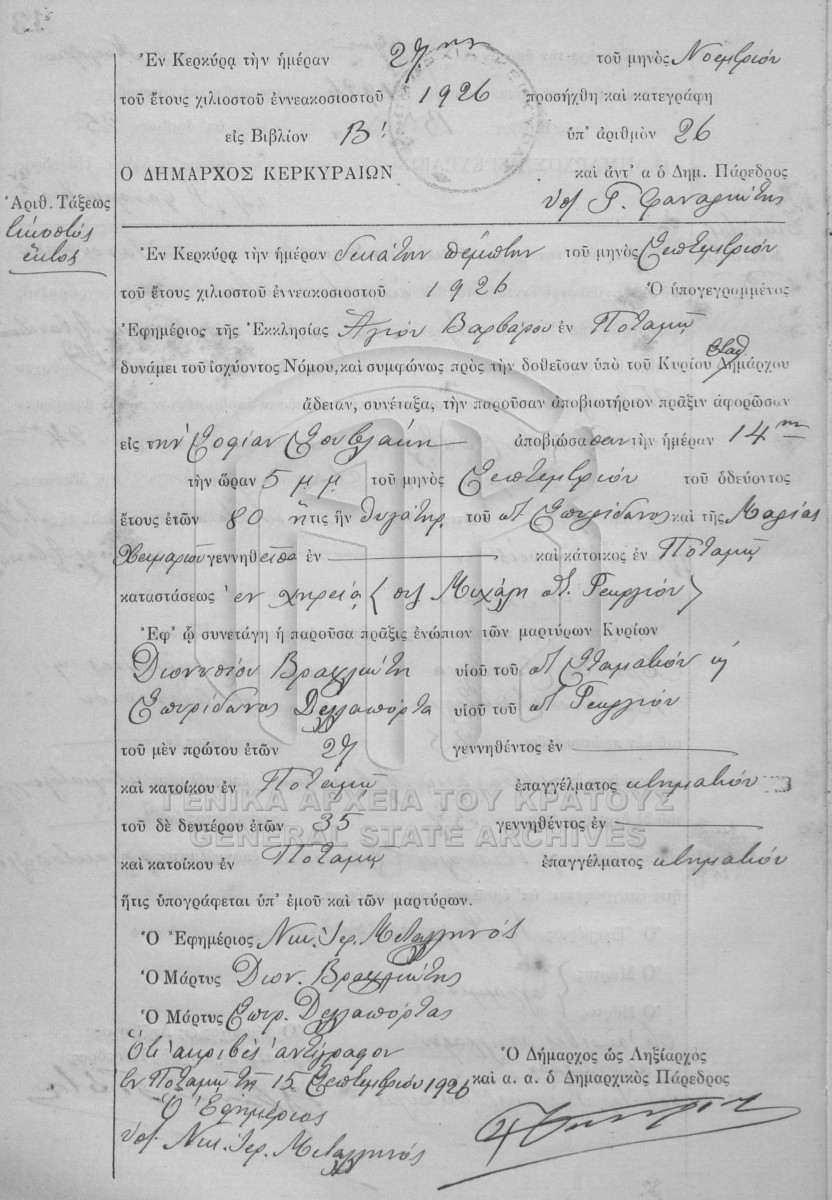 Ἐν Κερκύρᾳ τὴν ἡμέραν 27ην τοῦ μηνὸς Νοεμβρίου
τοῦ ἔτους χιλιοστοῦ ἐννεακοσιοστοῦ 1926 προσήχθη καὶ κατεγράφη
εἰς Βιβλίον Β! ὑπ' ἀριθμὸν 26
Ο ΔΗΜΑΡΧΟΣ ΚΕΡΚΥΡΑΙΩΝ καὶ ἀντ' α ὁ Δημ. Πάρεδρος
Ἀριθ. Τάξεως
Εἰκοστός
ἕκτος
Ἐν Κερκύρᾳ τὴν ἡμέραν δεκάτην πέμπτην τοῦ μηνὸς Σεπτεμβρίου
τοῦ ἔτους χιλιοστοῦ ἐννεακοσιοστοῦ 1926 Ὁ ὑπογεγραμμένος
Ἐφημέριος τῆς Ἐκκλησίας Ἁγίου Βαρβάρου ἐν Ποταμῷ
δυνάμει τοῦ ἰσχύοντος Νόμου, καὶ συμφώνως πρὸς τὴν δοθεῖσαν ὑπὸ τοῦ Κυρίου Δημάρχου
ἄδειαν, συνέταξα, τὴν παροῦσαν ἀποβιωτήριον πρᾶξιν ἀφορῶσαν
εἰς τὴν Σοφίαν Σουβλάκη ἀποβιώσασαν τὴν ἡμέραν 14ην
τὴν ὥραν 5 μ.μ. τοῦ μηνὸς Σεπτεμβρίου τοῦ ὁδεύοντος
ἔτους ἐτῶν 80 ἥτις ἦν θυγάτηρ τοῦ ποτ Σπυρίδωνος καὶ τῆς Μαρίας
Χειμαριου γεννηθεῖσα ἐν καὶ κάτοικος ἐν Ποταμῷ
καταστάσεως ἐν χηρείᾳ ( Μιχάλη ποτ. Γεωργίου )
Ἐφ' ᾧ συνετάγη ἡ παροῦσα πρᾶξις ἐνώπιον τῶν μαρτύρων Κυρίων
Διονυσίου Βραχλιώτη υἱοῦ τοῦ ποτ Σταματίου ἢ
Σπυρίδωνος Δελλαπόρτα υἱοῦ τοῦ ποτ Γεωργίου
τοῦ μὲν πρώτου ἐτῶν 27 γεννηθέντος ἐν
καὶ κατοίκου ἐν Ποταμῷ ἐπαγγέλματος κτηματίου
ΓΕΝΙΚΑ ΑΡΧΕΙΑ ΤΟΥ ΚΡΑΤΟΥΣ
τοῦ δὲ δευτέρου ἐτῶν 35 γεννηθέντος ἐν
GENERAL STATE ARCHIVES
καὶ κατοίκου ἐν Ποταμῷ ἐπαγγέλματος κτηματίου
ἥτις ὑπογράφεται ὑπ' ἐμοῦ καὶ τῶν μαρτύρων.
Ὁ Ἐφημέριος Νικ. Ἱερ. Μεταλληνός
Ὁ Μάρτυς Διον. Βραχλιώτης
Ὁ Μάρτυς Σπυρ. Δελλαπόρτας
Ὅτι ἀκριβὲς ἀντίγραφον
Ἐν Ποταμῷ τῇ 15 Σεπτεμβρίου 1926
Ὁ Ἐφημέριος
Νικ. Ἱερ. Μεταλληνός
Ὁ Δήμαρχος ὡς Ληξίαρχος
καὶ α. α. ὁ Δημαρχικὸς Πάρεδρος